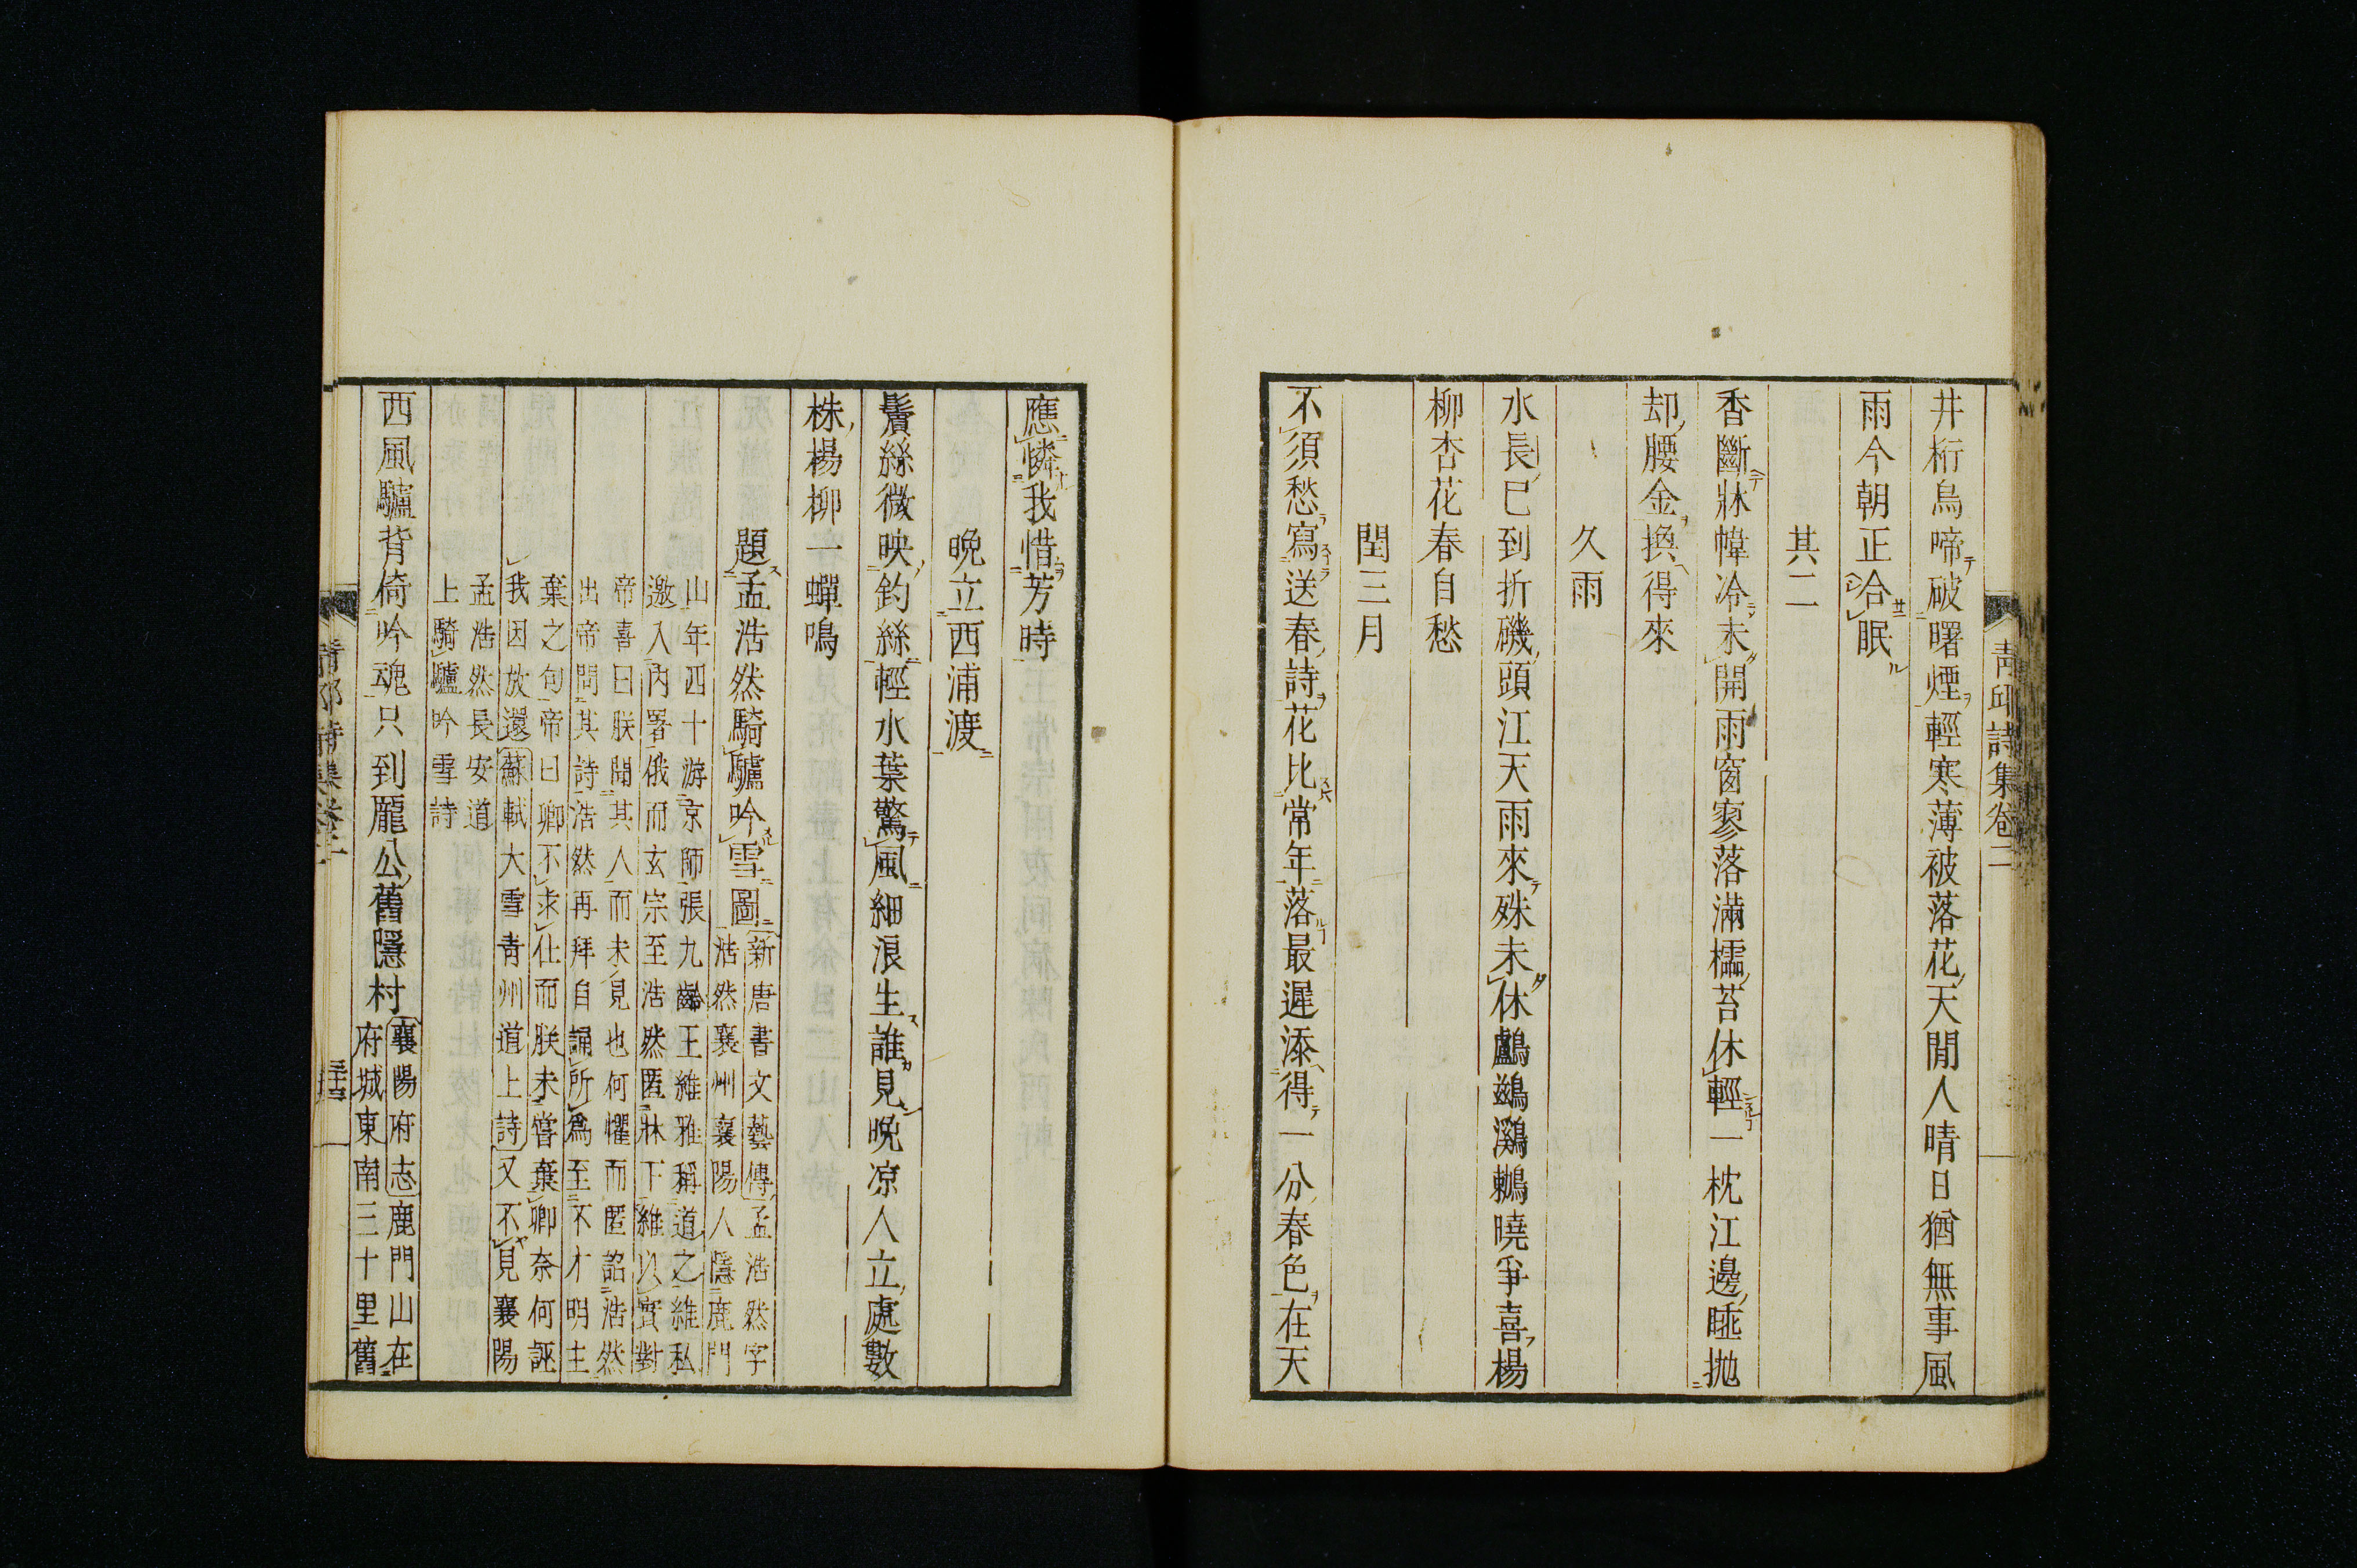 青邱詩集卷二
井桁烏啼破曙煙輕寒薄被落花天閒人晴日猶無事風
雨今朝正合眠
其二
香斷牀幃冷未開雨窗寥落滿櫺苔休輕一枕江邊睡抛
却腰金換得來
久雨
水長已到折磯頭江天雨來殊未休鸕鷀鸂鶒曉爭喜楊
柳杏花春自愁
閏三月
不須愁寫送春詩花比常年落最遲添得一分春色在天
應憐我惜芳時
晚立西浦渡
鬢絲微映釣絲輕水葉驚風細浪生誰見晚凉人立處數
株楊柳一蟬鳴
題孟浩然騎驢吟雪圖
新唐書文藝傳孟浩然字
浩然襄州襄陽人隱鹿門
山年四十游京師張九齡王維雅稱道之維私
邀入內署俄而玄宗至浩然匿牀下維以實對
帝喜曰朕聞其人而未見也何懼而匿詔浩然
出帝問其詩浩然再拜自誦所爲至不才明主
棄之句帝曰卿不求仕而朕未嘗棄卿奈何誣
我因放還蘇軾大雪青州道上詩又不見襄陽
孟浩然長安道
上騎驢吟雪詩
西風驢背倚吟魂只到龐公舊隱村
襄陽府志鹿門山在
府城東南三十里舊
青邱詩集卷二